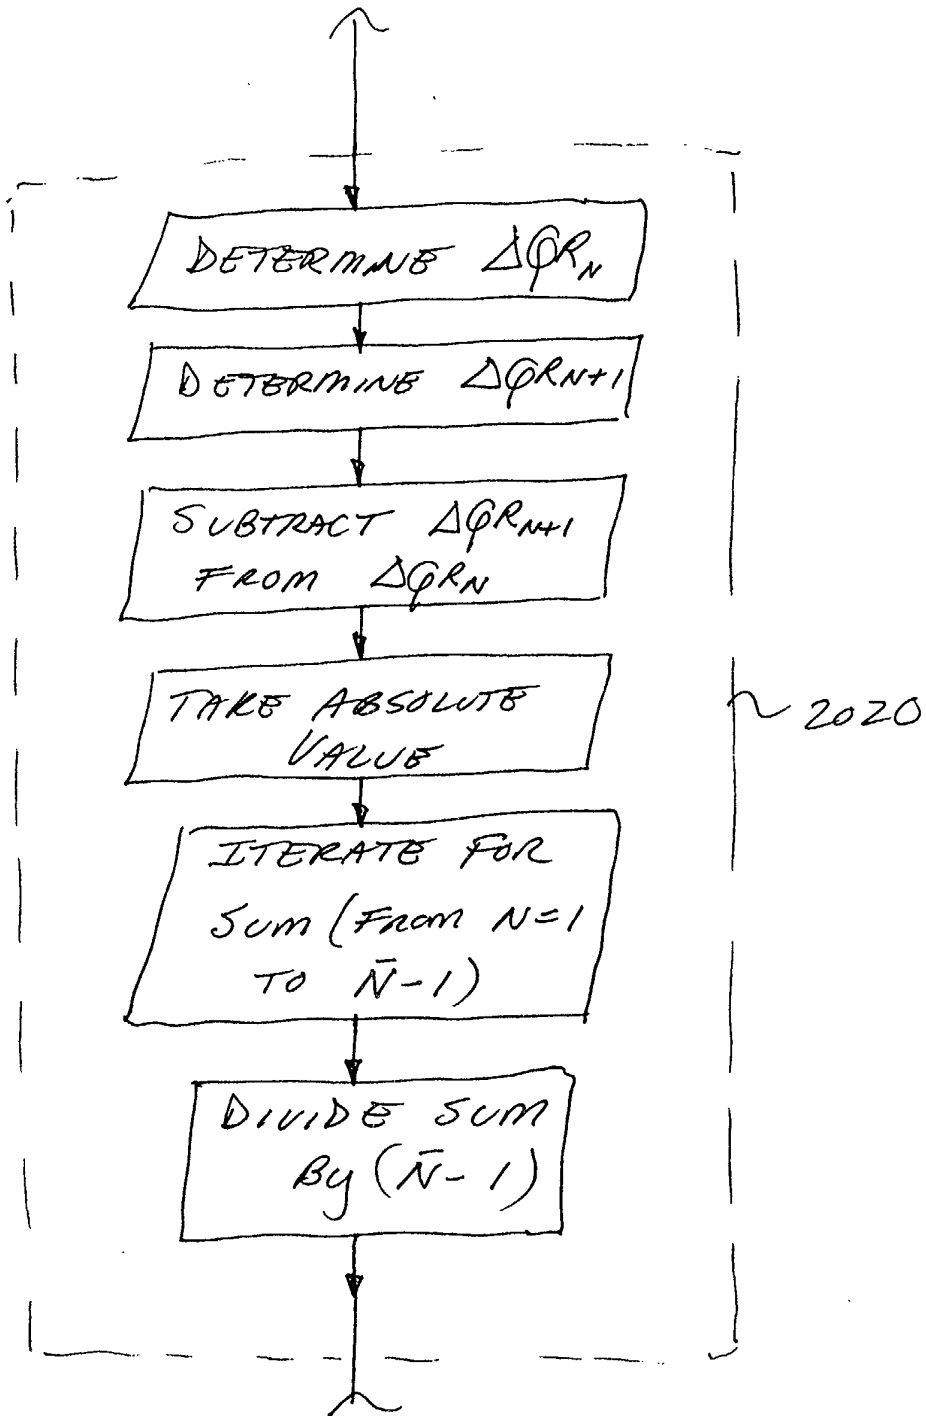 DETERMINE ΔφRN
DETERMINE ΔφRN+1
SUBTRACT ΔφRN+1
FROM ΔφRN
TAKE ABSOLUTE
VALUE
ITERATE FOR
SUM (FROM N=1
TO N̄-1)
DIVIDE SUM
By (N̄-1)
2020